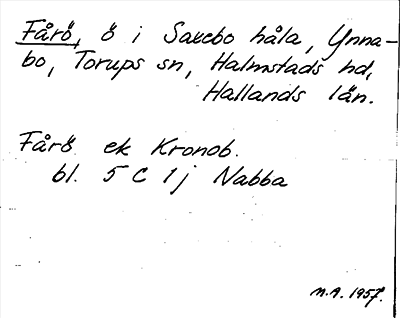 Fårö, ö i Saxebo håla, Ynna-
bo, Torups sn, Halmstads hd,
Hallands län.
Fårö ek Kronob.
bl. 5 C 1 j Nabba
M.A. 1957.